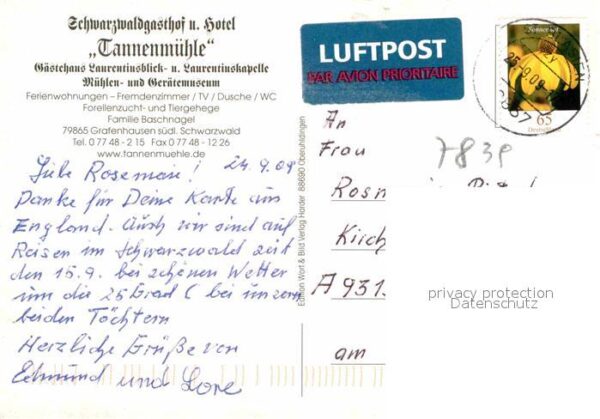 Schwarzwaldgasthof u. Hotel
„Tannenmühle“
Gästehaus Laurentiusblick- u. Laurentiuskapelle
Mühlen- und Gerätemuseum
Ferienwohnungen – Fremdenzimmer / TV / Dusche / WC
Forellenzucht- und Tiergehege
Familie Baschnagel
79865 Grafenhausen südl. Schwarzwald
Tel. 0 77 48 - 2 15 Fax 0 77 48 - 12 26
www.tannenmuehle.de
24.9.09
Liebe Rosemarie!
Danke für Deine Karte aus
England. Auch wir sind auf
Reisen im Schwarzwald seit
den 15.9. bei schönen Wetter
um die 25 Grad (bei unsern
beiden Töchtern
Herzliche Grüße von
Edmund und Lore
Edition Wort & Bild Verlag Harder 88690 Oberuhldingen
LUFTPOST
PAR AVION PRIORITAIRE
65
7839
An
Frau
Rosm
Kirch
A 931.
am
privacy protection
Datenschutz